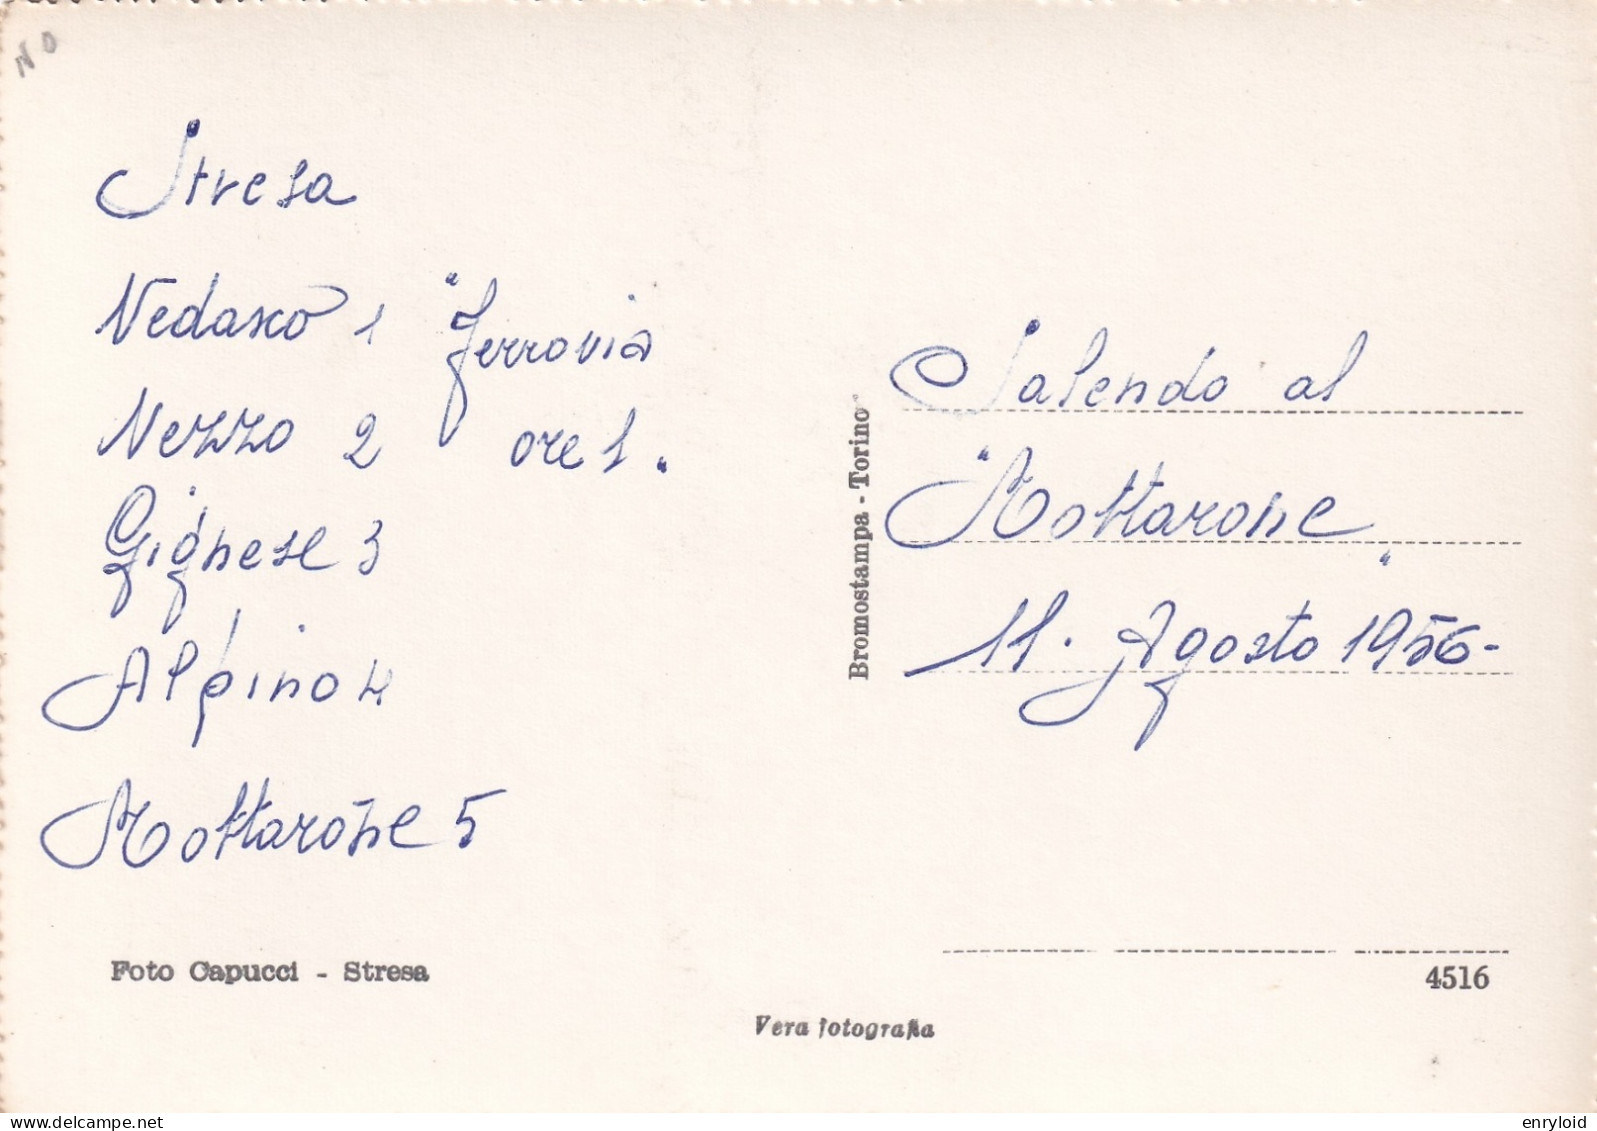 NO
Stresa
Vedasco 1
Nezzo 2
Gignese 3
Alpino 4
Mottarone 5
"Ferrovia
ore 1."
Foto Capucci - Stresa
Bromostampa - Torino
Salendo al
"Mottarone"
11. Agosto 1956-
4516
Vera fotografia
www.delcampe.net
enryloid